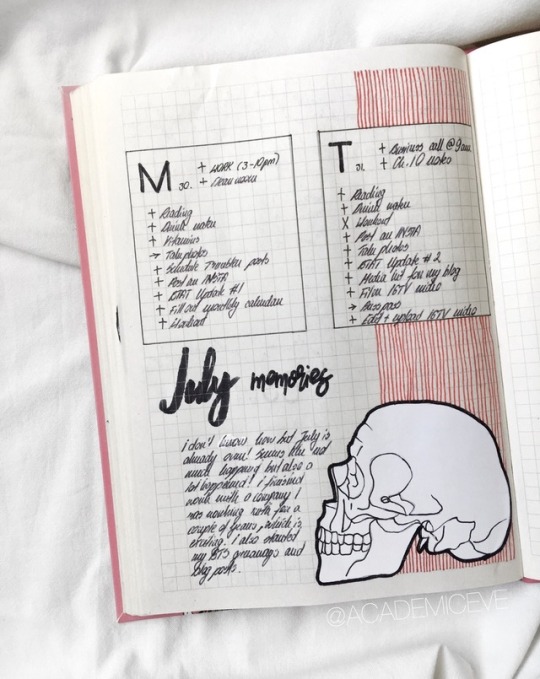 M
30.
+ WORK (3-10pm)
+ Clean room
+ Reading
+ Drink water
+ Vitamins
→ Take photos
+ Schedule Tumblr posts
+ Post an INSTA
+ Update #1
+ Fill out monthly calendar
+ Workout
T
31.
+ Business call @ 9am
+ Ch. 10 notes
+ Reading
+ Drink water
X Workout
+ Post an INSTA
+ Take photos
+ Update #2
+ Media kit for my blog
+ Film IGTV video
→ Buss pass
+ Edit + upload IGTV video
July memories
I don't know how but July is
already over! Seems like not
much happened but also a
lot happened! I finished
work with a company I
was working with for a
couple of years, which is
exciting. I also started
my BTS and
blog posts.
@ACADEMICEVE